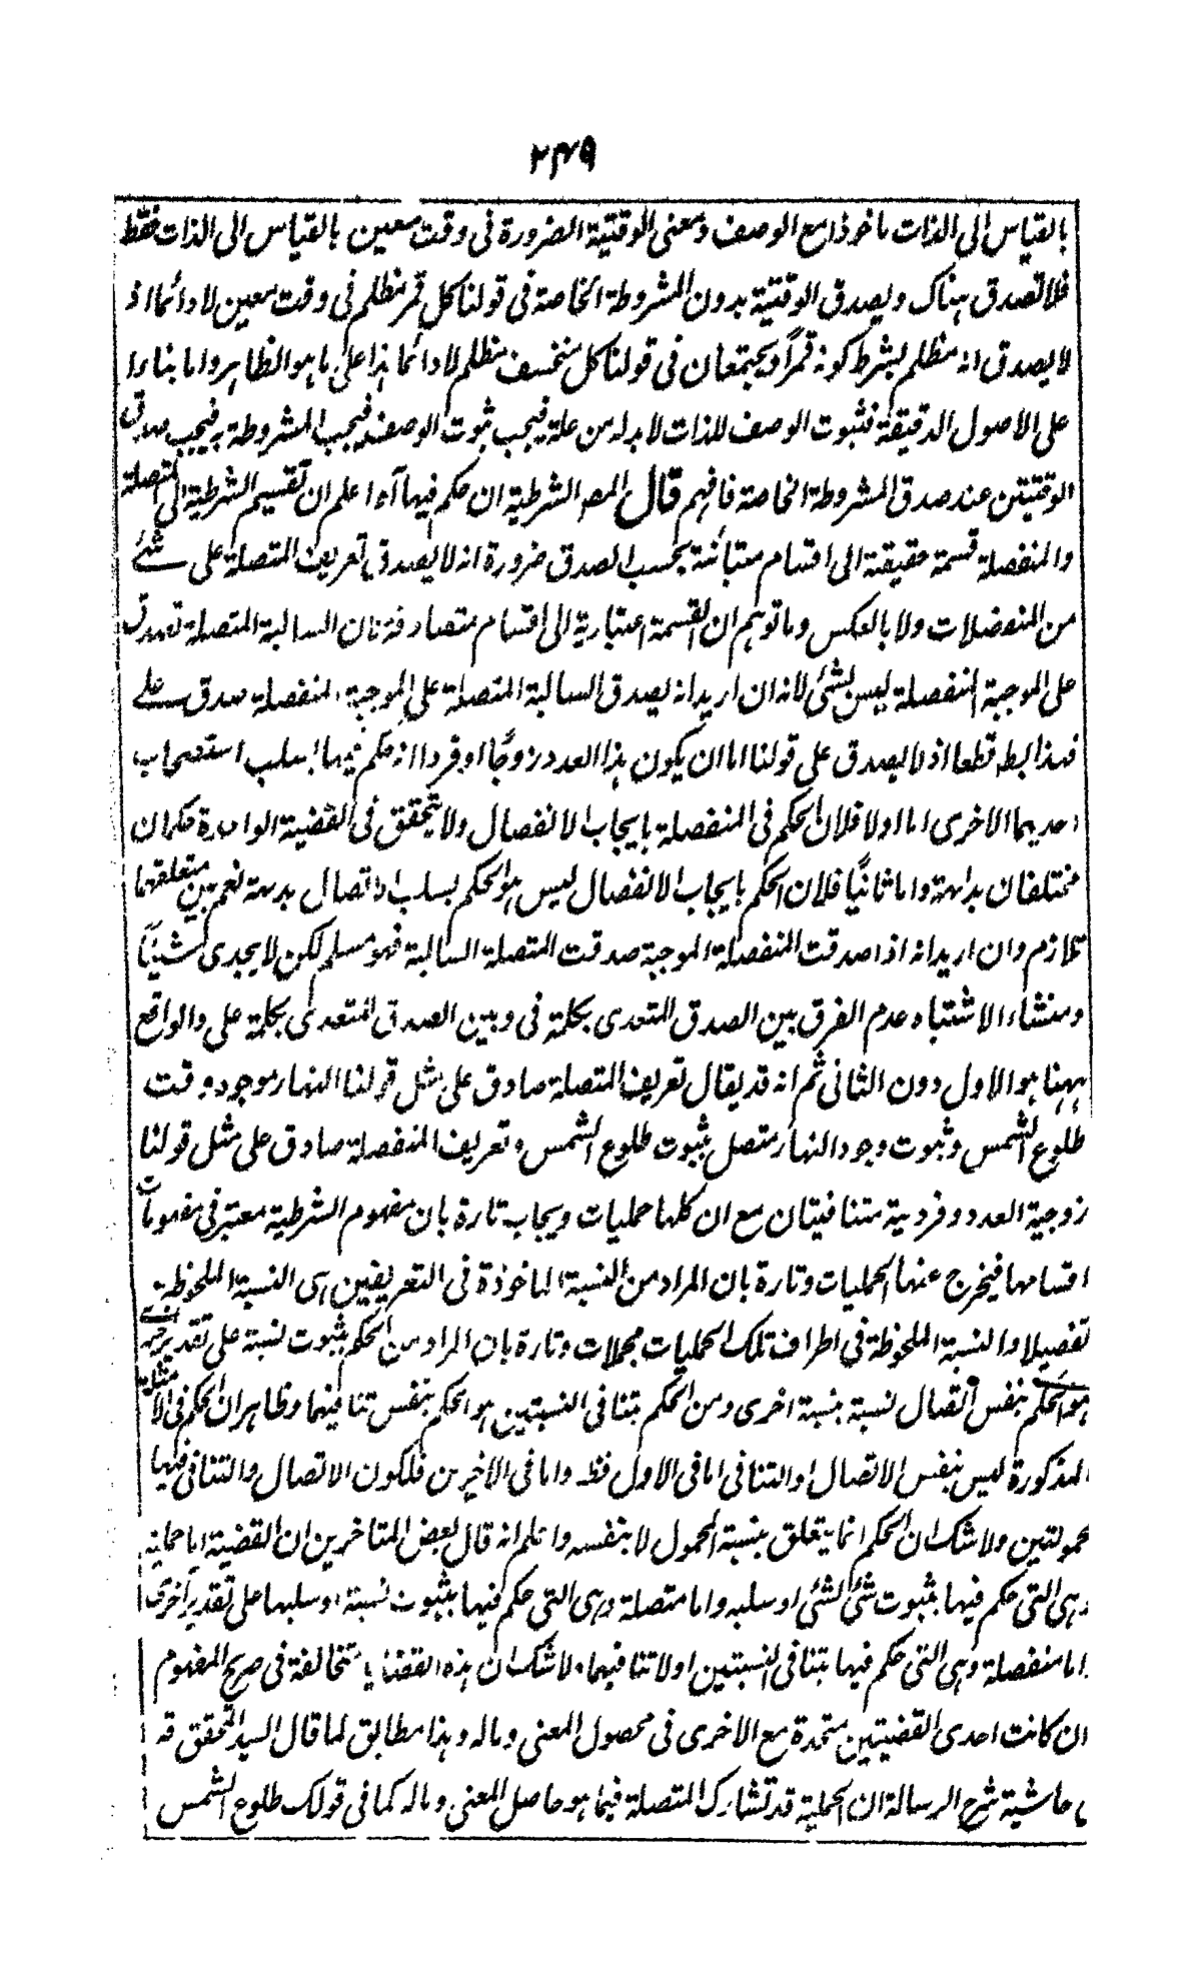 ۲۴۹
بالقياس الى الذات ماخوذا مع الوصف ومعنى الوقتية الضرورة فى وقت معين بالقياس الى الذات فقط
فلا تصدق هناك ويصدق الوقتية بدون المشروطة الخاصة فى قولنا كل قمر مظلم فى وقت معين لا دائما اذ
لا يصدق انه مظلم بشرط كونه قمراً ويجتمعان فى قولنا كل منخسف مظلم لا دائما هذا على ما هو الظاهر واما بناءا
على الاصول الدقيقة فثبوت الوصف للذات لا بد له من علة فيجب ثبوت الوصف فيجب المشروطة به فيجب صدق
الوقتيتن عند صدق المشروطة الخاصة فافهم قال المص الشرطية ان حكم فيها آه اعلم ان تقسيم الشرطية الى المتصلة
والمنفصلة قسمة حقيقة الى اقسام متبائنة بحسب الصدق ضرورة انه لا يصدق تعريف المتصلة على شئ
من المنفصلات ولا بالعكس وما توهم ان القسمة اعتبارية الى اقسام متصادقة فان السالبة المتصلة تصدق
على الموجبة المنفصلة ليس بشئ لانه ان اريد انه يصدق السالبة المتصلة على الموجبة المنفصلة صدق على
فهذا بط قطعا اذ لا يصدق على قولنا اما ان يكون هذا العدد زوجاً او فردا انه حكم فيها بسلب استصحاب
احديهما الاخرى اما اولا فلان الحكم فى المنفصلة بايجاب الانفصال ولا يتحقق فى القضية الواحدة حكمان
مختلفان بداهة واما ثانياً فلان الحكم بايجاب الانفصال ليس هو الحكم بسلب الاتصال بديهة نعم بين متعلقهما
تلازم وان اريد انه اذا صدقت المنفصلة الموجبة صدقت المتصلة السالبة فهو مسلم لكن لا يجدى شيئاً
ومنشاء الاشتباه عدم الفرق بين الصدق المتعدى بكلمة فى وبين الصدق المتعدى بكلمة على والواقع
ههنا هو الاول دون الثانى ثم انه قد يقال تعريف المتصلة صادق على مثل قولنا النهار موجود وقت
طلوع الشمس وثبوت وجود النهار متصل بثبوت طلوع الشمس وتعريف المنفصلة صادق على مثل قولنا
زوجية العدد وفردية متنافيتان مع ان كلها حمليات ويجاب تارة بان مفهوم الشرطية معتبر فى مفهومات
اقسامها فيخرج عنها الحمليات وتارة بان المراد من النسبة الماخوذة فى التعريفين هى النسبة الملحوظة
تفصيلا والنسبة الملحوظة فى اطراف تلك الحمليات مجملات وتارة بان المراد من الحكم بثبوت نسبة على تقدير اخرى
هو الحكم بنفس اتصال نسبة بنسبة اخرى ومن الحكم بتنافى النسبتين هو الحكم بنفس تنافيهما وظاهر ان الحكم فى الامثلة
المذكورة ليس بنفس الاتصال او التنافى اما فى الاول فظ واما فى الاخيرين فلكون الاتصال والتنافى فيها
محمولتين ولا شك ان الحكم انما يتعلق بنسبة المحمول لا بنفسه واعلم انه قال بعض المتاخرين ان القضية اما حملية
وهى التى حكم فيها بثبوت شئ لشئ او سلبه واما متصلة وهى التى حكم فيها بثبوت نسبة او سلبها على تقدير اخرى
واما منفصلة وهى التى حكم فيها بتنافى النسبتين او لا تنافيهما ولا شك ان هذه القضايا متخالفة فى صريح المفهوم
ان كانت احدى القضيتين متحدة مع الاخرى فى محصول المعنى وماله وهذا مطابق لما قال السيد المحقق قه
حاشية شرح الرسالة ان الحملية قد تشارك المتصلة فيما هو حاصل المعنى وماله كما فى قولك طلوع الشمس